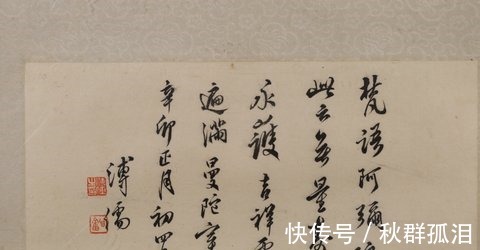 梵語阿彌
此云無量
永護吉祥雲
遍滿曼陀室
辛卯正月初四
溥儒
快传号 / 秋群孤泪